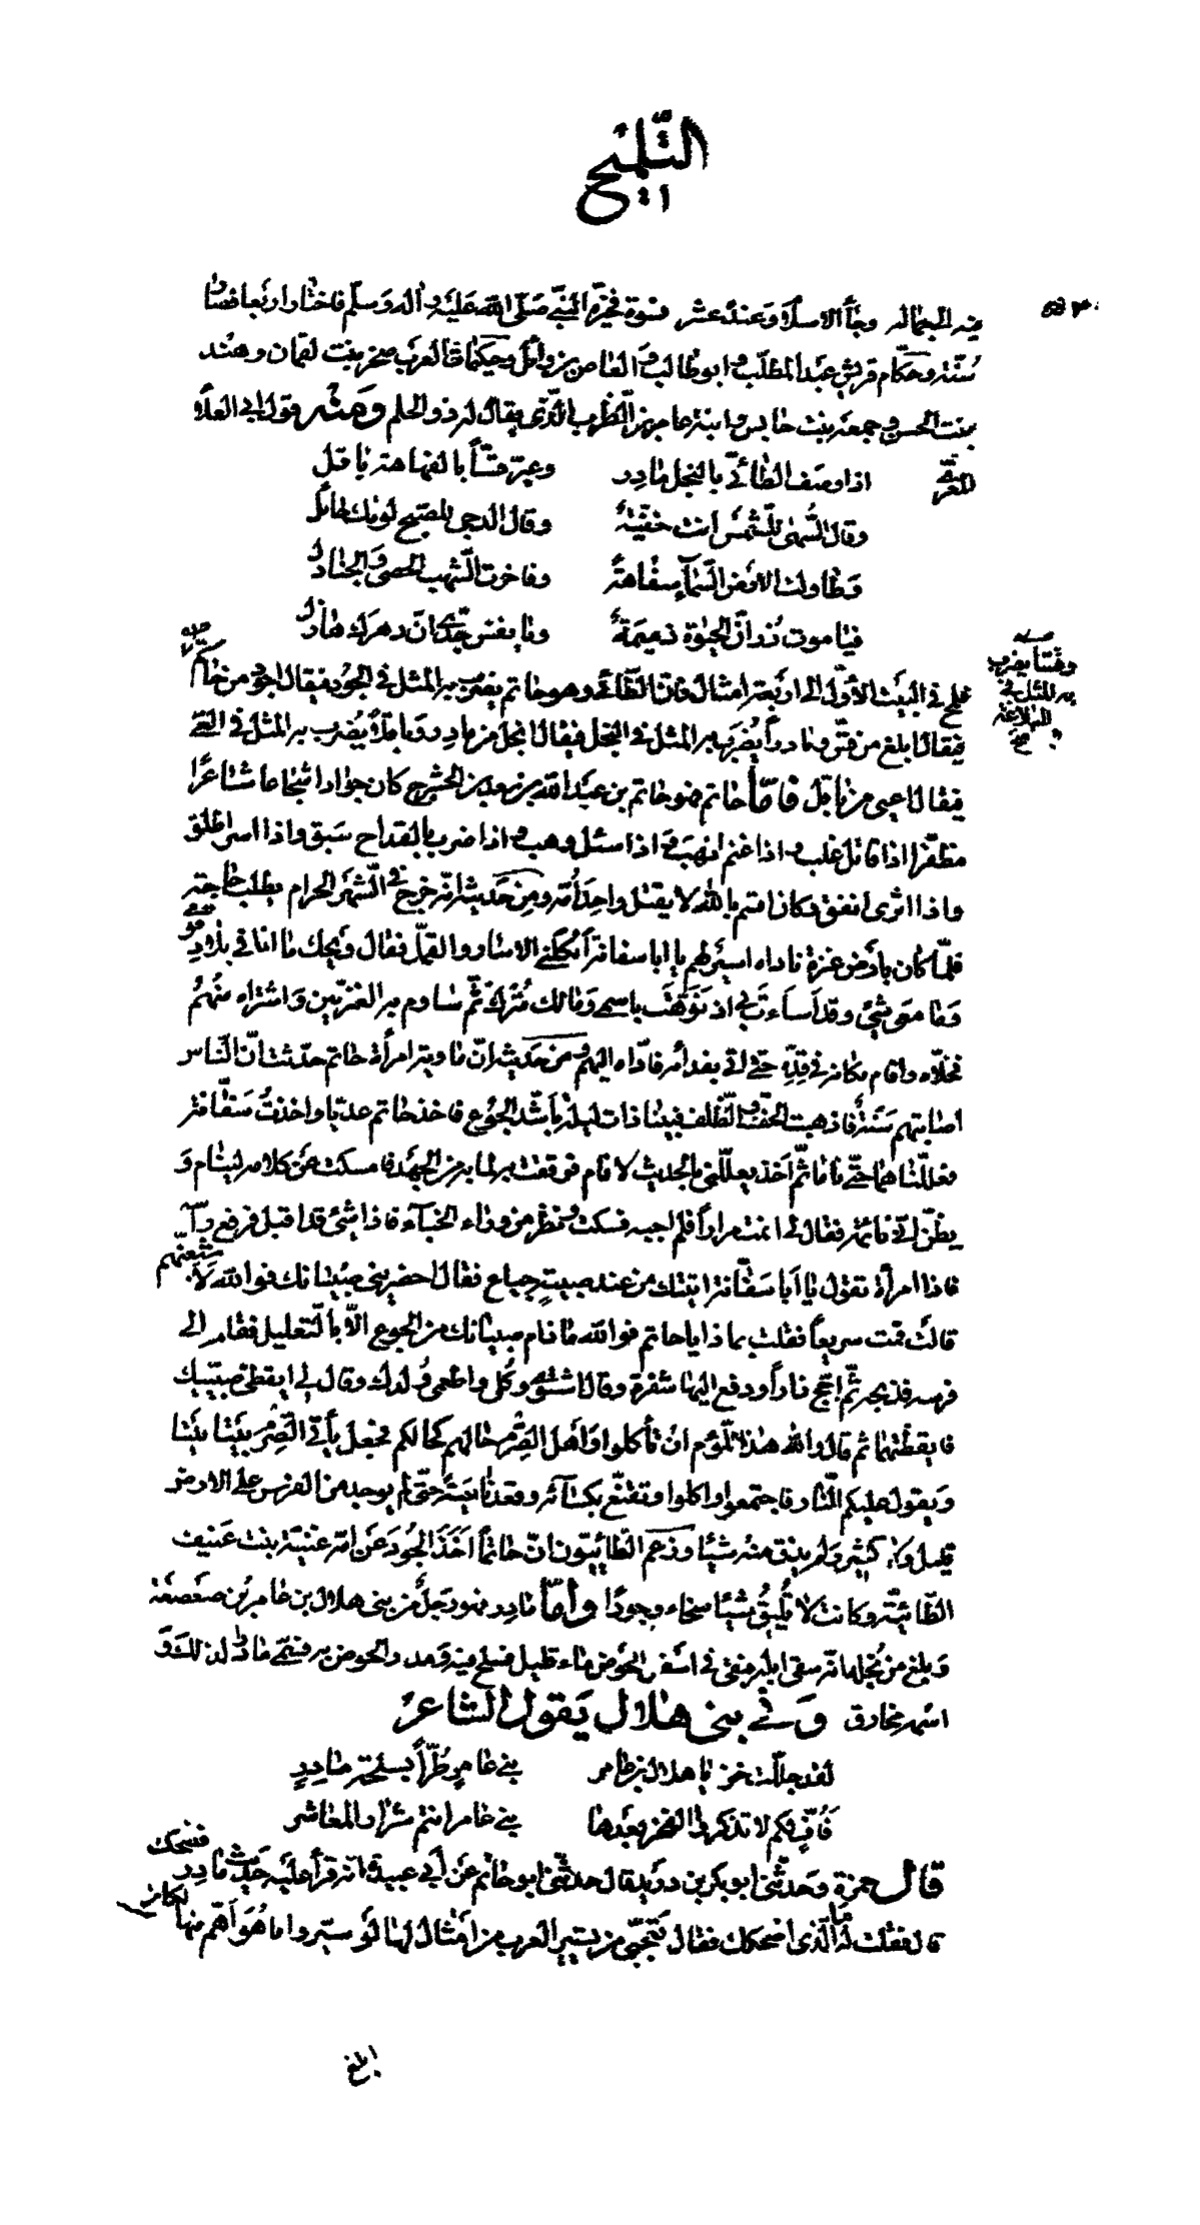 التلميح
فيه الجمالة وجاء الاسلام وعنده عشر نسوة فخيره النبي صلى الله عليه وآله وسلم فاختار اربعا فصار
سنة وحكام قريش عبد المطلب وابو طالب والعاص بن وائل وحكيمات العرب صخر بنت لقمان وهند
بنت الخس وجمعة بنت حابس وابنة عامر بن الظرب الذي يقال له ذو الحلم ومنه قول ابي العلاء
المعري
اذا وصف الطائي بالبخل مادر وعير قسا بالفهاهة باقل
وقال السهى للشمس انت خفية وقال الدجى للصبح لونك حائل
وطاولت الارض السماء سفاهة وفاخرت الشهب الحصى والجنادل
فيا موت زر ان الحيوة ذميمة ويا نفس جدي ان دهرك هازل
لمح في البيت الأول الى اربعة امثال فان الطائي وهو حاتم يضرب به المثل في الجود فيقال اجود من حاتم
وقسا يضرب
به المثل في
البلاغة
فيقال ابلغ من قس ومادرا يضرب به المثل في البخل فيقال ابخل من مادر وباقلا يضرب به المثل في العي
فيقال اعيى من باقل فاما حاتم فهو حاتم بن عبد الله بن سعد بن الحشرج كان جوادا شجاعا شاعرا
مظفرا اذا قاتل غلب واذا غنم انهب واذا سئل وهب واذا ضرب بالقداح سبق واذا اسر اطلق
واذا اثرى انفق وكان اقسم بالله لا يقتل واحد امه ومن حديثه انه خرج في الشهر الحرام يطلب حاجة
فلما كان بارض عنزة ناداه اسير لهم يا ابا سفانة اكلني الاسار والقمل فقال ويحك ما انا في بلاد قومي
وما معي شيء وقد اسأت بي اذ نوهت باسمي ومالك مترك ثم ساوم به العنزيين واشتراه منهم
فخلاه واقام مكانه في قده حتى اتي بفدائه فاداه اليهم ومن حديثه ان ماوية امرأة حاتم حدثت ان الناس
اصابتهم سنة فاذهبت الخف والظلف فبتنا ذات ليلة باشد الجوع فاخذ حاتم عديا واخذت سفانة
فعللناهما حتى ناما ثم اخذ يعللني بالحديث لانام فرققت له لما به من الجهد فامسكت عن كلامه لينام و
يظن اني نائمة فقال لي انمت مرارا فلم اجبه فسكت ونظر من وراء الخباء فاذا شيء قد اقبل فرفع رأسه
فاذا امرأة تقول يا ابا سفانة اتيتك من عند صبية جياع فقال احضريني صبيانك فوالله لاشبعنهم
قالت قمت سريعا فقلت بماذا يا حاتم فوالله ما نام صبيانك من الجوع الا بالتعليل فقام الى
فرسه فذبحه ثم اجج نارا ودفع اليها شفرة وقال اشتوي وكلي واطعمي ولدك وقال لي ايقظي صبييك
فايقظتهما ثم قال والله هذا اللؤم ان تأكلوا واهل الصرم حالهم كحالكم فجعل يأتي الصرم بيتا بيتا
ويقول عليكم النار فاجتمعوا واكلوا وتقنع بكسائه وقعد ناحية حتى لم يوجد من الفرس على الارض
قليل ولا كثير ولم يذق منه شيئا وزعم الطائيون ان حاتما اخذ الجود عن امه عنبة بنت عفيف
الطائية وكانت لا تليق شيئا سخاء وجودا واما مادر فهو رجل من بني هلال بن عامر بن صعصعة
وبلغ من بخله انه سقى ابله فبقي في اسفل الحوض ماء قليل فسلح فيه ومدر الحوض به فسمي مادرا لذلك و
اسمه مخارق وفي بني هلال يقول الشاعر
لقد جللت خزيا هلال بن عامر بني عامر طرا بسلحة مادر
فاف لكم لا تذكروا الفخر بعدها بني عامر انتم شرار المعاشر
قال حمزة وحدثني ابو بكر بن دريد قال حدثني ابو حاتم عن ابي عبيدة انه قرأ عليه حديث مادر فضحك
قال فقلت له ما الذي اضحكك فقال تعجبي من تسيير العرب من امثال لها لو سيروا ما هو اهم منها لكان
ابلغ